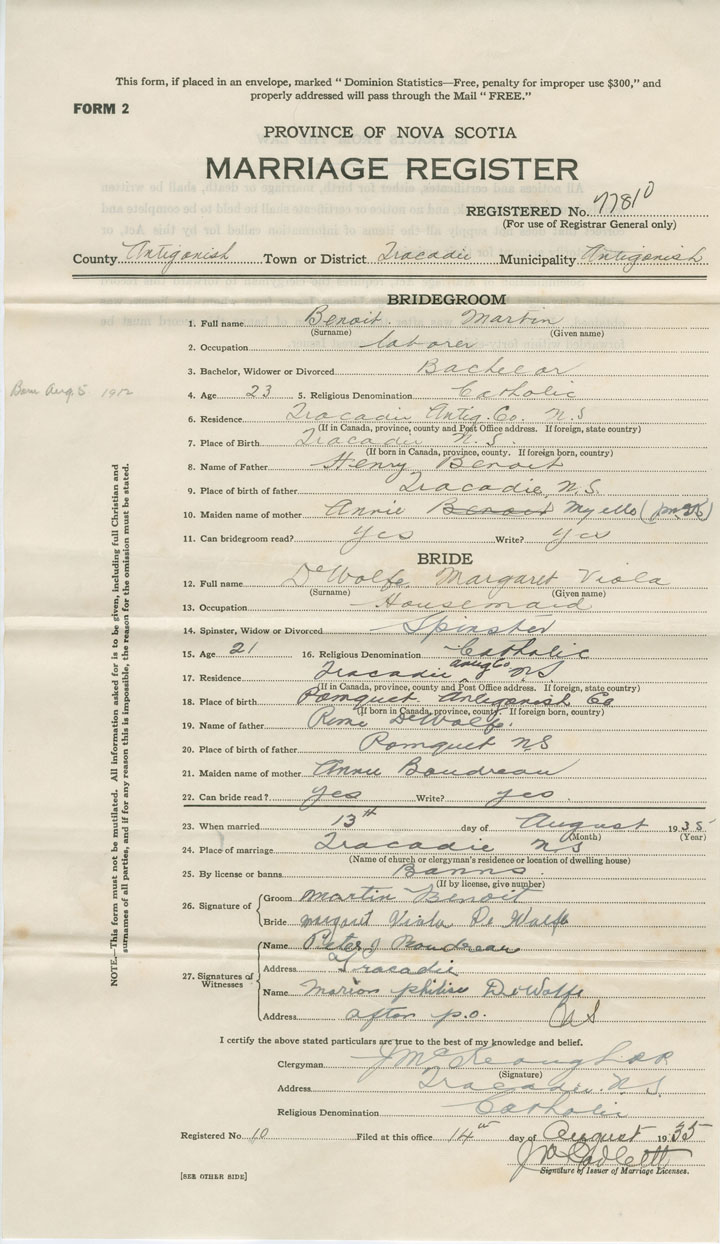 This form, if placed in an envelope, marked " Dominion Statistics—Free, penalty for improper use $300," and
properly addressed will pass through the Mail " FREE."
FORM 2
PROVINCE OF NOVA SCOTIA
MARRIAGE REGISTER
REGISTERED No. 77810
(For use of Registrar General only)
County Antigonish Town or District Tracadie Municipality Antigonish
BRIDEGROOM
1. Full name Benoit Martin
(Surname) (Given name)
2. Occupation laborer
3. Bachelor, Widower or Divorced Bachelor
Born Aug. 5 1912
4. Age 23 5. Religious Denomination Catholic
6. Residence Tracadie Antig. Co. N.S
(If in Canada, province, county and Post Office address. If foreign, state country)
7. Place of Birth Tracadie N.S.
(If born in Canada, province, county. If foreign born, country)
8. Name of Father Henry Benoit
9. Place of birth of father Tracadie, N.S.
10. Maiden name of mother Annie Benoit Myette
11. Can bridegroom read? Yes Write? Yes
BRIDE
12. Full name DeWolfe Margaret Viola
(Surname) (Given name)
13. Occupation Housemaid
14. Spinster, Widow or Divorced Spinster
15. Age 21 16. Religious Denomination Catholic
17. Residence Tracadie Antig Co N.S
(If in Canada, province, county and Post Office address. If foreign, state country)
18. Place of birth Pomquet Antigonish Co
(If born in Canada, province, county. If foreign born, country)
19. Name of father Remi DeWolfe.
20. Place of birth of father Pomquet NS
21. Maiden name of mother Annie Boudreau
22. Can bride read? yes Write? yes.
23. When married 13th day of August 1935
(Month) (Year)
24. Place of marriage Tracadie N.S
(Name of church or clergyman's residence or location of dwelling house)
25. By license or banns Banns
(If by license, give number)
26. Signature of Groom Martin Benoit
Bride Margaret Viola De Wolfe
27. Signatures of Witnesses
Name Peter J Boudreau
Address Tracadie
Name Marion DeWolfe
Address afton p.o. NS
I certify the above stated particulars are true to the best of my knowledge and belief.
Clergyman J McKeough P.P.
(Signature)
Address Tracadie. N.S.
Religious Denomination Catholic
Registered No. 10 Filed at this office 14th day of August 1935
Signature of Issuer of Marriage Licenses.
[SEE OTHER SIDE]
NOTE.—This form must not be mutilated. All information asked for is to be given, including full Christian and
surnames of all parties, and if for any reason this is impossible, the reason for the omission must be stated.